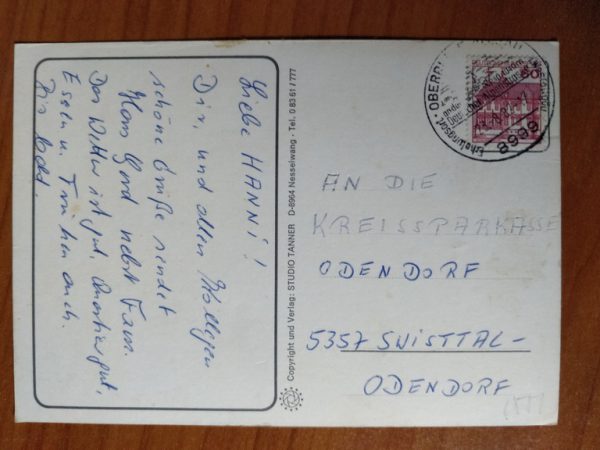 Liebe HANNI!
Dir, und allen Kollegen
schöne Grüße sendet
Horst Gord nebst Fam.
Das Wetter ist gut, Quartier gut,
Essen u. Trinken auch.
Bis bald.
Copyright und Verlag: STUDIO TANNER D-8964 Nesselwang - Tel. 0 83 61 / 777
8999
60
AN DIE
KREISSPARKASSE
ODENDORF
5357 SWISTTAL-
ODENDORF